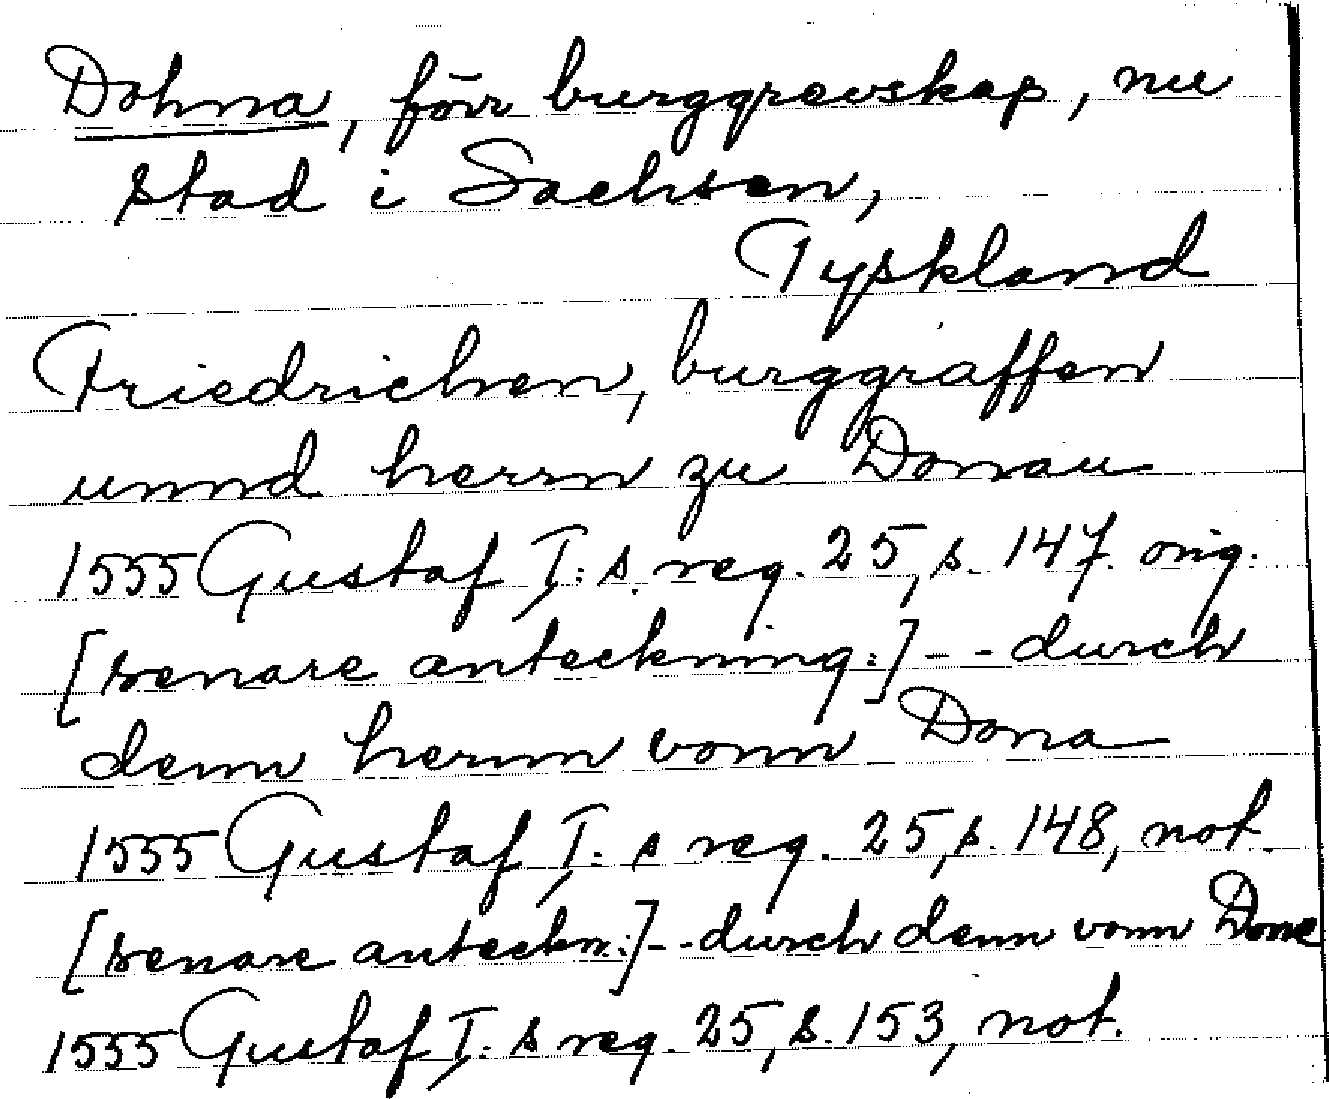 Dohna, förr burggrevskap, nu
stad i Sachsen,
Tyskland
Friedrichen, burggraffen
unnd herrn zu Donau
1555 Gustaf I:s reg. 25, s. 147. orig.
[senare anteckning:] - - durch
denn herrnn vonn Dona
1555 Gustaf I:s reg. 25, s. 148, not.
[senare anteckn:] - - durch denn vonn Done
1555 Gustaf I:s reg. 25, s. 153, not.